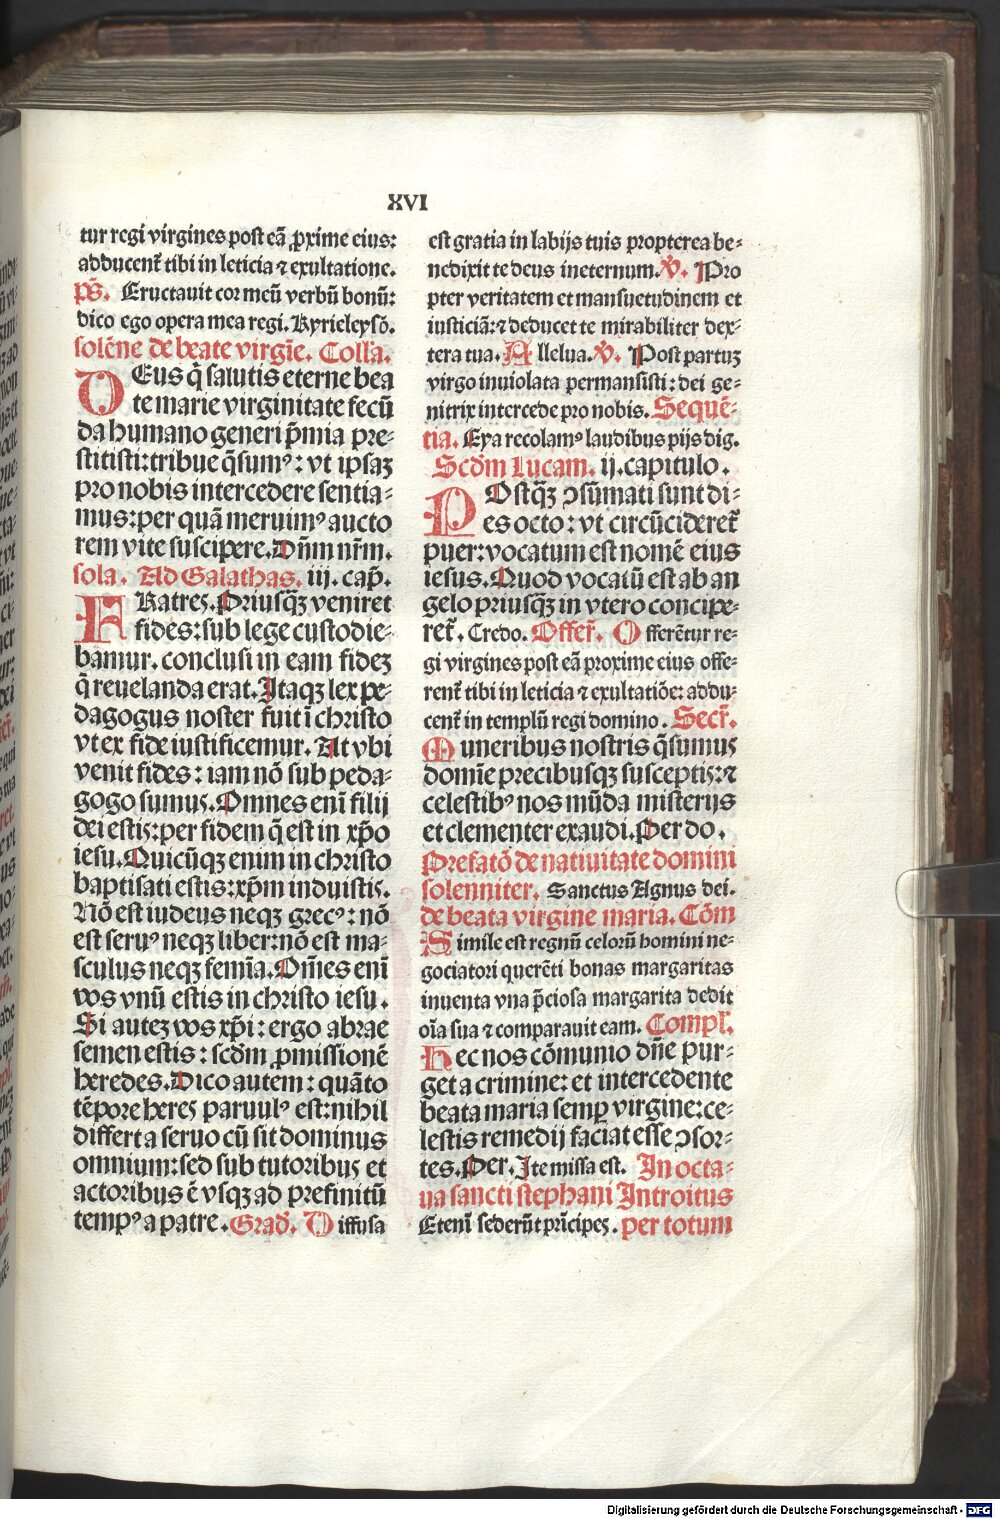 XVI
tur regi virgines post eã ꝓxime eius:
adducent᷑ tibi in leticia ⁊ exultatione.
ps̃. Eructauit cor meũ verbũ bonũ:
dico ego opera mea regi. Kyrieleysõ.
solẽne de beate virgĩe. Coll̃a.
DEus q̃ salutis eterne bea
te marie virginitate fecũ
da humano generi p̃mia pre-
stitisti: tribue q̃sumꝰ: vt ipsaꝫ
pro nobis intercedere sentia-
mus: per quã meruimꝰ aucto
rem vite suscipere. Dñm nr̃m.
sola. Ad Galathas. iij. cap̃.
FRatres. Priusqꝫ̃ veniret
fides: sub lege custodie-
bamur. conclusi in eam fideꝫ
q̃ reuelanda erat. Itaqꝫ lex pe-
dagogus noster fuit ĩ christo
vt ex fide iustificemur. At vbi
venit fides: iam nõ sub peda-
gogo sumus. Omnes enĩ filij
dei estis: per fidem q̃ est in xp̃o
iesu. Quicũqꝫ enim in christo
baptisati estis: xp̃m induistis.
Nõ est iudeus neqꝫ grecꝰ: nõ
est seruꝰ neqꝫ liber: nõ est ma-
sculus neqꝫ femĩa. Om̃es enĩ
vos vnũ estis in christo iesu.
Si auteꝫ vos xp̃i: ergo abrae
semen estis: scd̃m ꝓmissionẽ
heredes. Dico autem: quãto
tẽpore heres paruulꝰ est: nihil
differt a seruo cũ sit dominus
omnium: sed sub tutoribus et
actoribus ẽ vsqꝫ ad prefinitũ
tempꝰ a patre. Grad̃. Diffusa
est gratia in labijs tuis propterea be-
nedixit te deus in eternum. ℣. Pro
pter veritatem et mansuetudinem et
iusticiã: ⁊ deducet te mirabiliter dex-
tera tua. Allelua. ℣. Post partuꝫ
virgo inuiolata permansisti: dei ge-
nitrix intercede pro nobis. Sequẽ-
tia. Eya recolamꝰ laudibus pijs dig.
Scd̃m Lucam. ij. capitulo.
POstqꝫ̃ ↄsũmati sunt di-
es octo: vt circũcideret᷑
puer: vocatum est nomẽ eius
iesus. Quod vocatũ est ab an
gelo priusqꝫ̃ in vtero concipe-
ret᷑. Credo. Offer̃. Offerẽtur re-
gi virgines post eã proxime eius offe-
rent᷑ tibi in leticia ⁊ exultatiõe: addu-
cent᷑ in templũ regi domino. Secr̃.
Muneribus nostris q̃sumus
domĩe precibusqꝫ susceptis: ⁊
celestibꝰ nos mũda misterijs
et clementer exaudi. Per do.
Prefatõ de natiuitate domini
solenniter. Sanctus Agnus dei.
de beata virgine maria. Cõm
Simile est regnũ celorũ homini ne-
gociatori querẽti bonas margaritas
inuenta vna p̃ciosa margarita dedit
oĩa sua ⁊ comparauit eam. Compl̃.
Hec nos cõmunio dñe pur-
get a crimine: et intercedente
beata maria semp̱ virgine: ce-
lestis remedij faciat esse ↄsor-
tes. Per. Ite missa est. In octa-
ua sancti stephani Introitus
Etenĩ sederũt prĩcipes. per totum
Digitalisierung gefördert durch die Deutsche Forschungsgemeinschaft - DFG